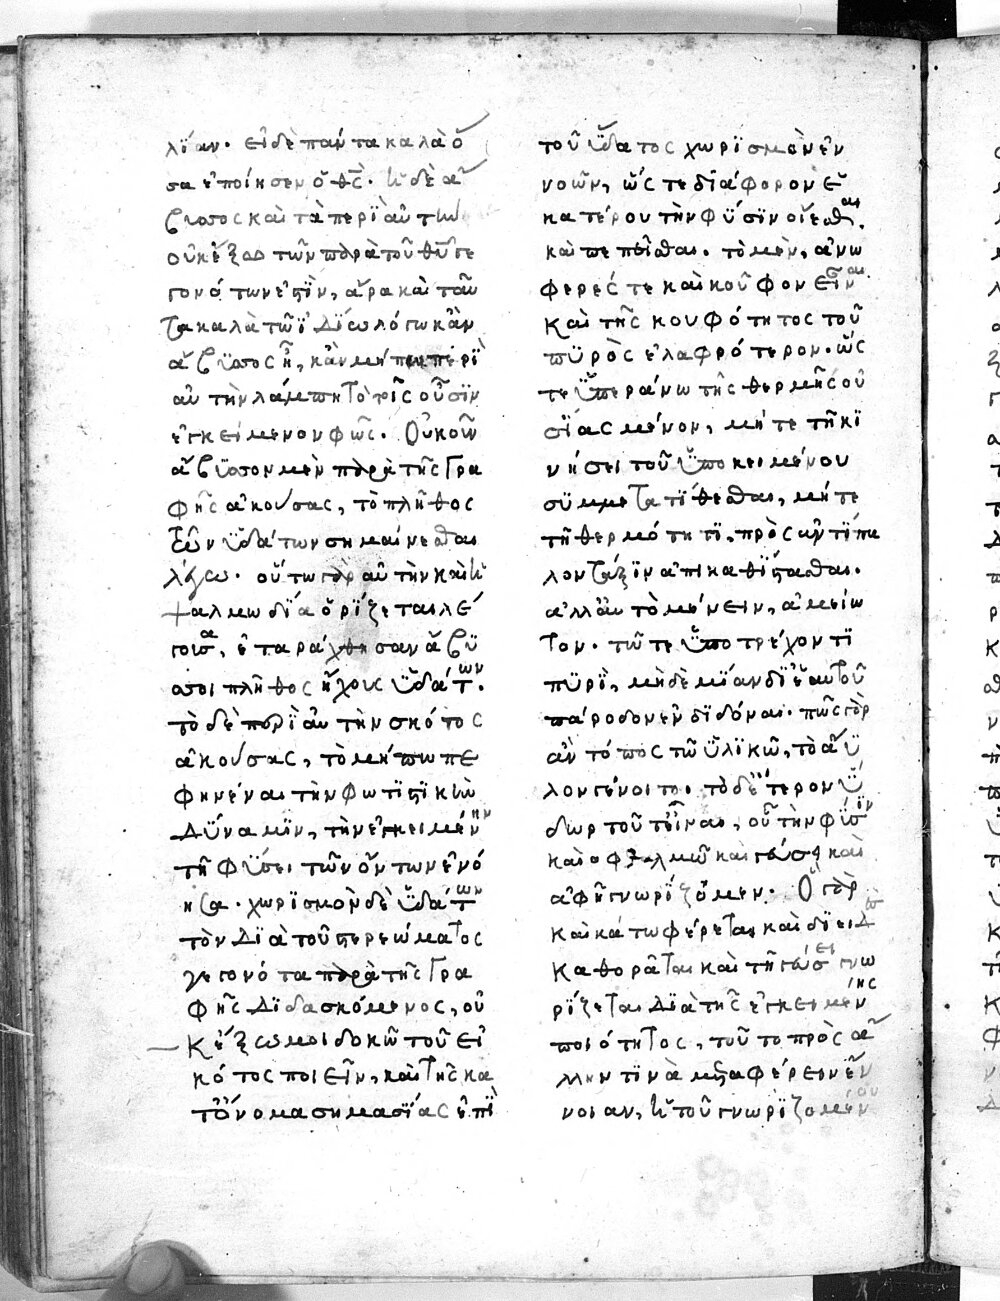 λίαν· εἰ δὲ πάντα καλὰ ὅ
σα ἐποίησεν ὁ θς. ἡ δὲ ἄ
βυσσος καὶ τὰ περὶ αὐτὴν
οὐκ ἔξω τῶν παρὰ τοῦ θυ γε
γονότων ἐστὶν, ἄρα καὶ ταῦ
τα καλὰ τῷ ἰδίῳ λόγῳ κἂν
ἄβυσσος ᾖ, κἂν μήπω περὶ
αὐτὴν λάμπῃ τὸ τοῖς οὖσιν
ἐγκείμενον φῶς. Οὐκοῦν
ἄβυσσον μὲν παρὰ τῆς Γρα
φῆς ἀκούσας, τὸ πλῆθος
τῶν ὑδάτων σημαίνεσθαι
λέγω. οὕτω γὰρ αὐτὴν καὶ ἡ
ψαλμωδία ὁρίζεται λέ
γουσα, ἐταράχθησαν ἄβυ
σσοι πλῆθος ἤχους ὑδάτων.
τὸ δὲ περὶ αὐτὴν σκότος
ἀκούσας, τὸ μήπω πε
φηνέναι τὴν φωτιστικὴν
δύναμιν, τὴν ἐγκειμένην
τῇ φύσει τῶν ὄντων ἐνό
ησα. χωρισμὸν δὲ ὑδάτων
τὸν διὰ τοῦ στερεώματος
γεγονότα παρὰ τῆς Γρα
φῆς διδασκόμενος, οὐ
κ ἔξω μοι δοκῶ τοῦ εἰ
κότος ποιεῖν, καὶ τῆς κα
τ' ὄνομα σημασίας ἐπὶ
τοῦ ὕδατος χωρισμὸν ἐν
νοῶν, ὥς τε διάφορον ἑ
κατέρου τὴν φύσιν οἴεσθαι.
καὶ πεπεῖσθαι. τὸ μὲν, ἀνω
φερές τε καὶ κοῦφον εἶναι
καὶ τῆς κουφότητος τοῦ
πυρὸς ἐλαφρότερον. ὥς
τε ὑπεράνω τῆς θερμῆς οὐ
σίας μένον, μήτε τῇ κι
νήσει τοῦ ὑποκειμένου
συμμετατίθεσθαι, μήτε
τῇ θερμότητι, πρὸς ἀντίπα
λον τάξιν ἀπικαθίστασθαι.
ἀλλ' αὐτὸ μένειν, ἀμείω
τον. τῷ τε ὑποτρέχοντι
πυρὶ, μηδὲ μίαν δι' ἑαυτοῦ
πάροδον ἐνδιδόναι. πῶς γὰρ
ἂν τόπος τῷ ὑλικῷ, τὸ ἄυ
λον γένοιτο. τὸ δεύτερον ὕ
δωρ τοῦτο εἶναι, οὗ τὴν φύσιν
καὶ ὀφθαλμῷ καὶ γεύσει καὶ
ἀφῇ γνωρίζομεν. Ὃ γὰρ
καὶ κάτω φέρεται καὶ δι' εἴδους
καθορᾶται καὶ τῇ γεύσει γνω
ρίζεται διὰ τῆς ἐγκειμένης
ποιότητος, τοῦτο πρὸς ἄ
λλην τινὰ μεταφέρειν ἔν
νοιαν, ἢ τοῦ γνωριζομένου